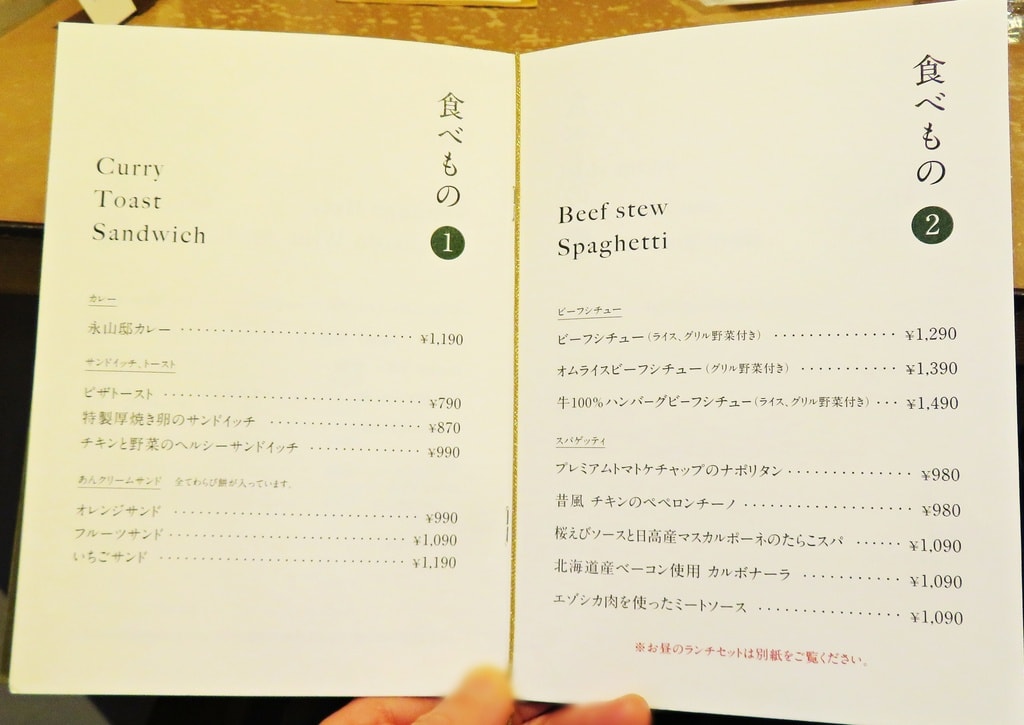 食べもの
1
Curry
Toast
Sandwich
カレー
永山邸カレー ¥1,190
サンドイッチ、トースト
ピザトースト ¥790
特製厚焼き卵のサンドイッチ ¥870
チキンと野菜のヘルシーサンドイッチ ¥990
あんクリームサンド 全てわらび餅が入っています。
オレンジサンド ¥990
フルーツサンド ¥1,090
いちごサンド ¥1,190
食べもの
2
Beef stew
Spaghetti
ビーフシチュー
ビーフシチュー（ライス、グリル野菜付き） ¥1,290
オムライスビーフシチュー（グリル野菜付き） ¥1,390
牛100%ハンバーグビーフシチュー（ライス、グリル野菜付き） ¥1,490
スパゲッティ
プレミアムトマトケチャップのナポリタン ¥980
昔風 チキンのペペロンチーノ ¥980
桜えびソースと日高産マスカルポーネのたらこスパ ¥1,090
北海道産ベーコン使用 カルボナーラ ¥1,090
エゾシカ肉を使ったミートソース ¥1,090
※お昼のランチセットは別紙をご覧ください。